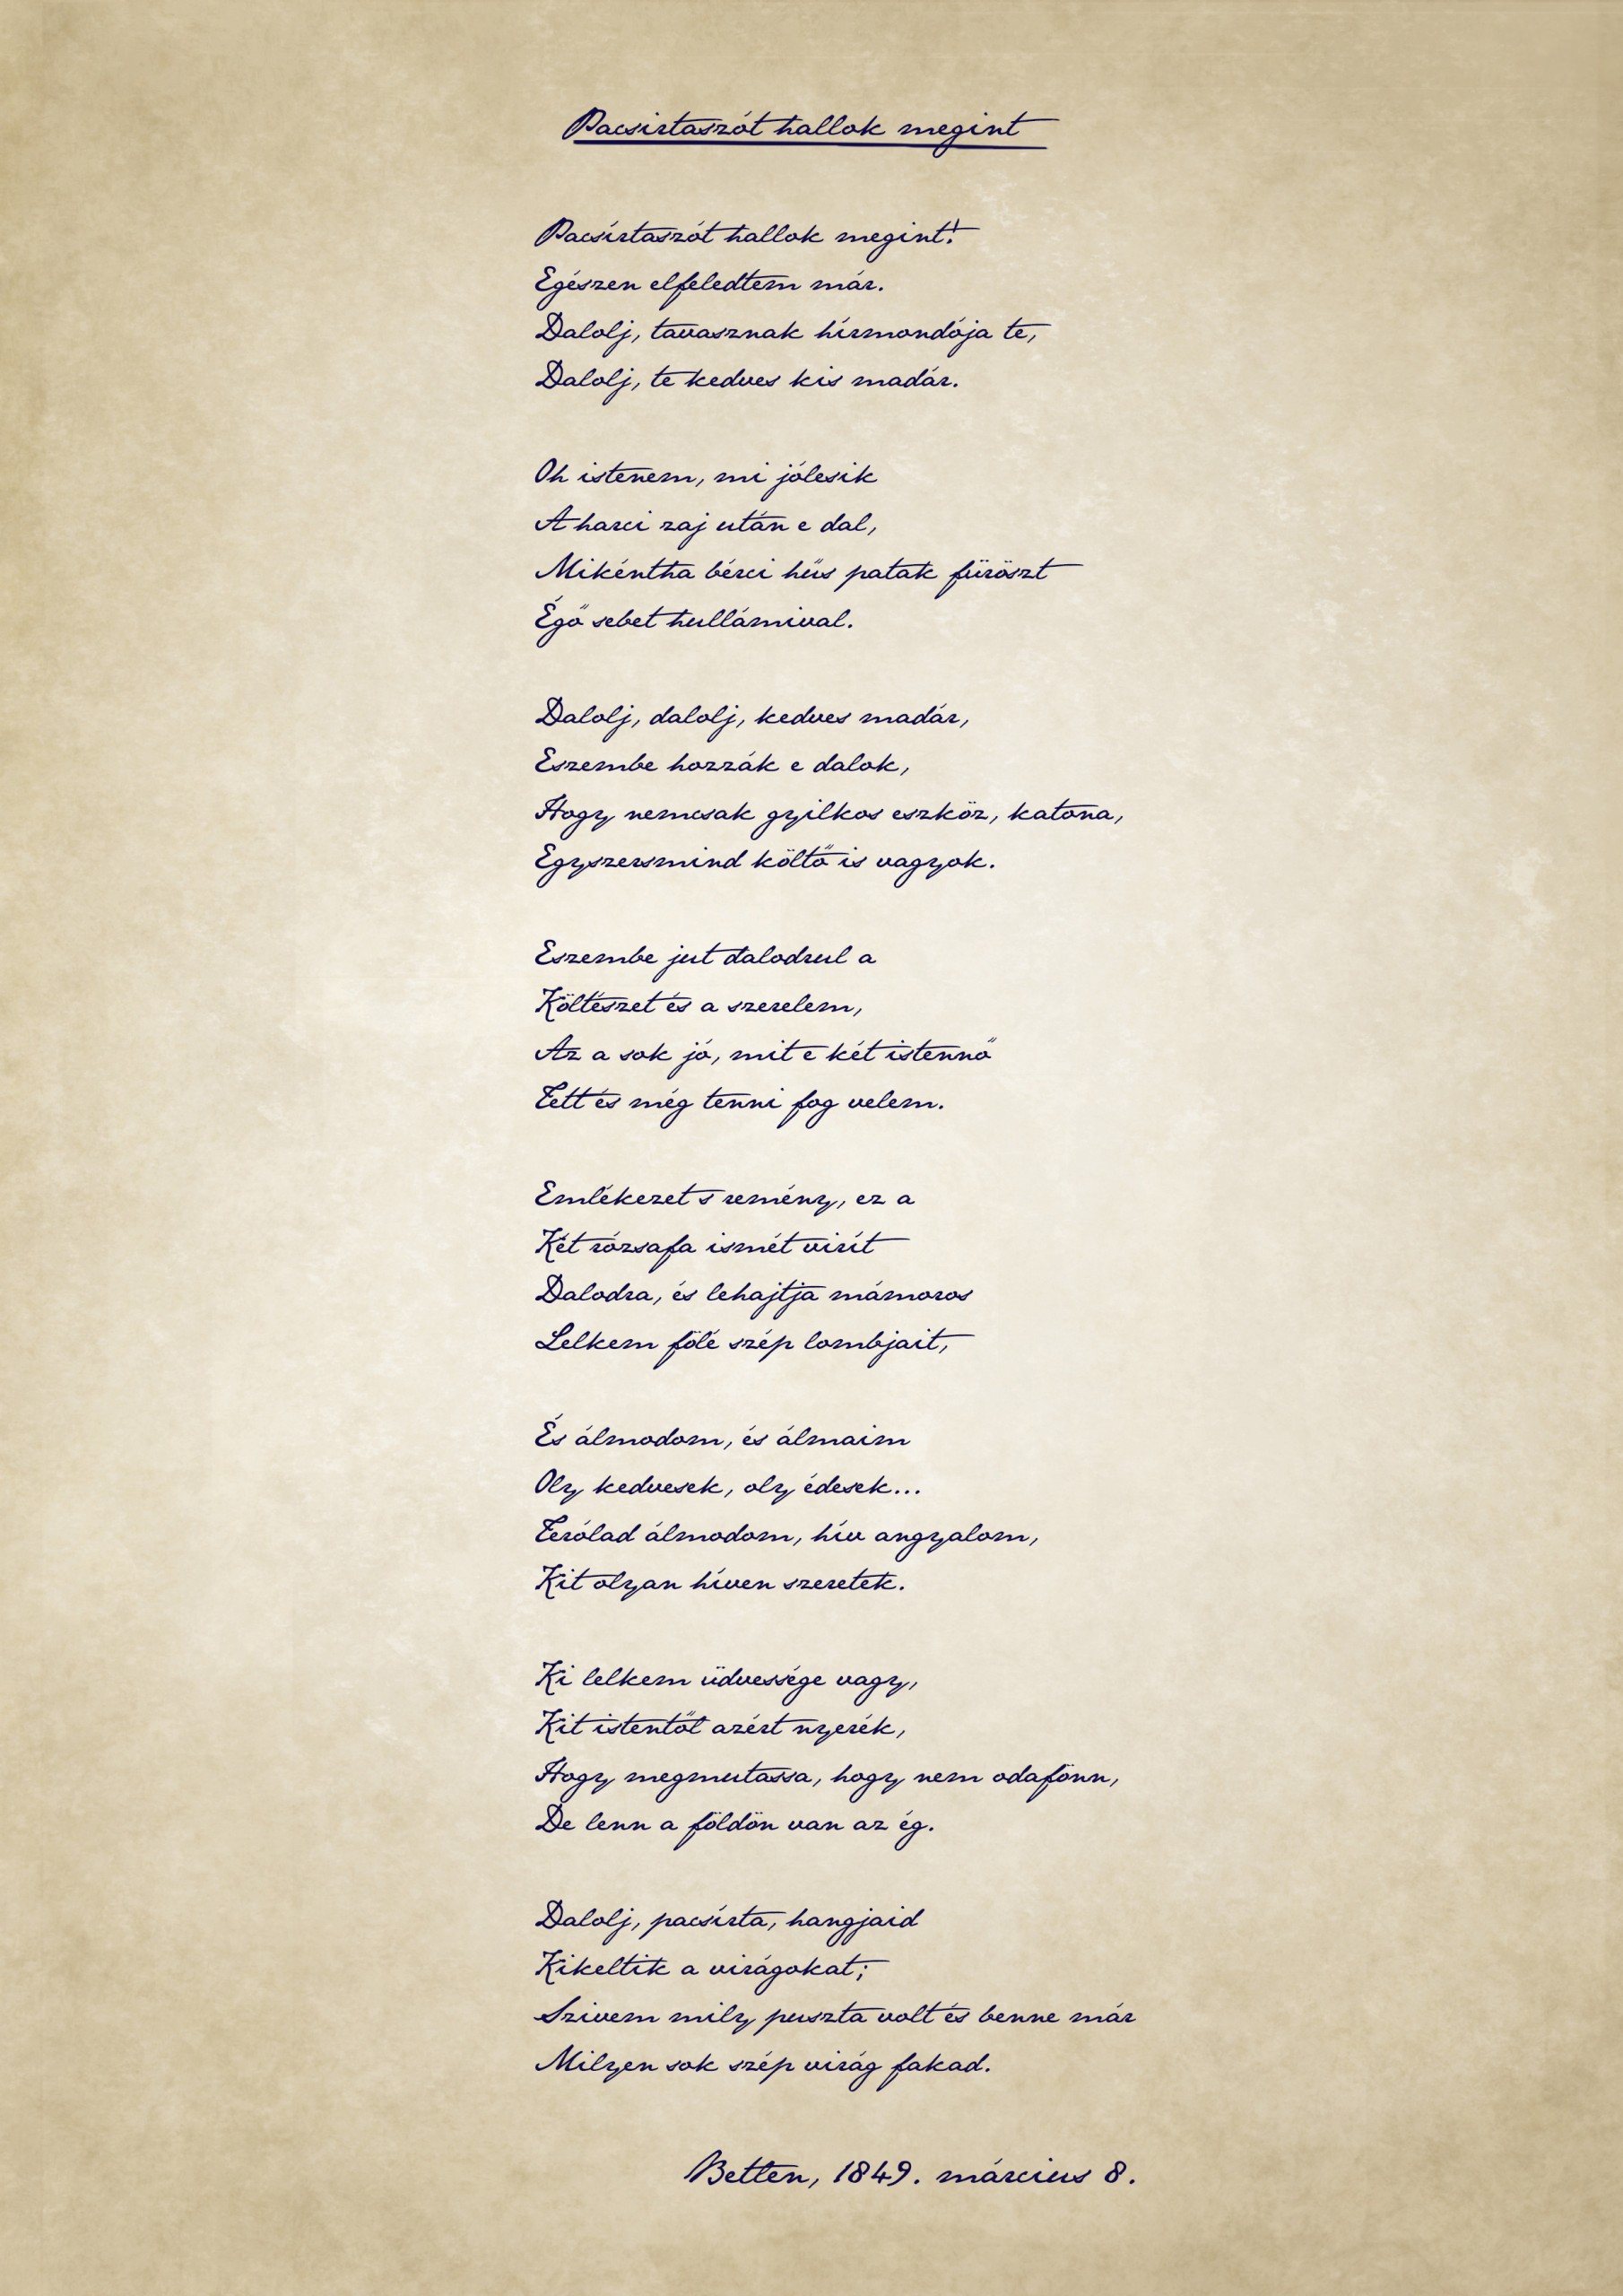 Pacsirtaszót hallok megint
Pacsírtaszót hallok megint!
Egészen elfeledtem már.
Dalolj, tavasznak hírmondója te,
Dalolj, te kedves kis madár.
Oh istenem, mi jólesik
A harci zaj után e dal,
Mikéntha bérci hűs patak füröszt
Égő sebet hullámival.
Dalolj, dalolj, kedves madár,
Eszembe hozzák e dalok,
Hogy nemcsak gyilkos eszköz, katona,
Egyszersmind költő is vagyok.
Eszembe jut dalodrul a
Költészet és a szerelem,
Az a sok jó, mit e két istennő
Tett és még tenni fog velem.
Emlékezet s remény, ez a
Két rózsafa ismét virít
Dalodra, és lehajtja mámoros
Lelkem fölé szép lombjait,
És álmodom, és álmaim
Oly kedvesek, oly édesek...
Terólad álmodom, hív angyalom,
Kit olyan híven szeretek.
Ki lelkem üdvessége vagy,
Kit istentől azért nyerék,
Hogy megmutassa, hogy nem odafönn,
De lenn a földön van az ég.
Dalolj, pacsírta, hangjaid
Kikeltik a virágokat;
Szivem mily puszta volt és benne már
Milyen sok szép virág fakad.
Betlen, 1849. március 8.